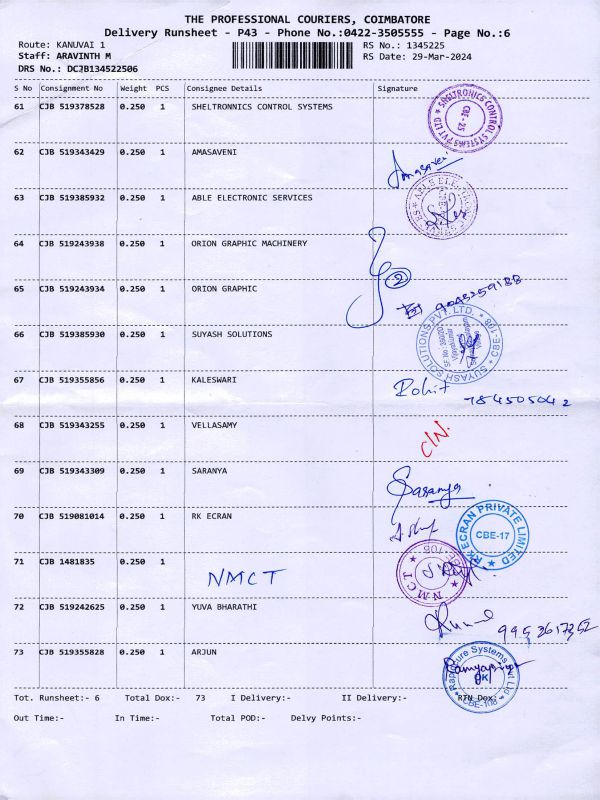 THE PROFESSIONAL COURIERS, COIMBATORE
Delivery Runsheet - P43 - Phone No.:0422-3505555 - Page No.:6
Route: KANUVAI 1 RS No.: 1345225
Staff: ARAVINTH M RS Date: 29-Mar-2024
DRS No.: DCJB134522506
S No Consignment No Weight PCS Consignee Details Signature
61 CJB 519378528 0.250 1 SHELTRONNICS CONTROL SYSTEMS
SHELTRONICS CONTROL SYSTEMS PVT LTD CBE-25
62 CJB 519343429 0.250 1 AMASAVENI Amasaveni
63 CJB 519385932 0.250 1 ABLE ELECTRONIC SERVICES
64 CJB 519243938 0.250 1 ORION GRAPHIC MACHINERY
2
65 CJB 519243934 0.250 1 ORION GRAPHIC
66 CJB 519385930 0.250 1 SUYASH SOLUTIONS
SUYASH SOLUTIONS PVT. LTD. CBE-108
67 CJB 519355856 0.250 1 KALESWARI Rohit
7845050042
68 CJB 519343255 0.250 1 VELLASAMY C/N.
69 CJB 519343309 0.250 1 SARANYA Saranya
70 CJB 519081014 0.250 1 RK ECRAN
RK ECRAN PRIVATE LIMITED CBE-17
71 CJB 1481835 0.250 1 NMCT
72 CJB 519242625 0.250 1 YUVA BHARATHI
9952617352
73 CJB 519355828 0.250 1 ARJUN
Tot. Runsheet:- 6 Total Dox:- 73 I Delivery:- II Delivery:- RTN Dox:
Out Time:- In Time:- Total POD:- Delvy Points:-